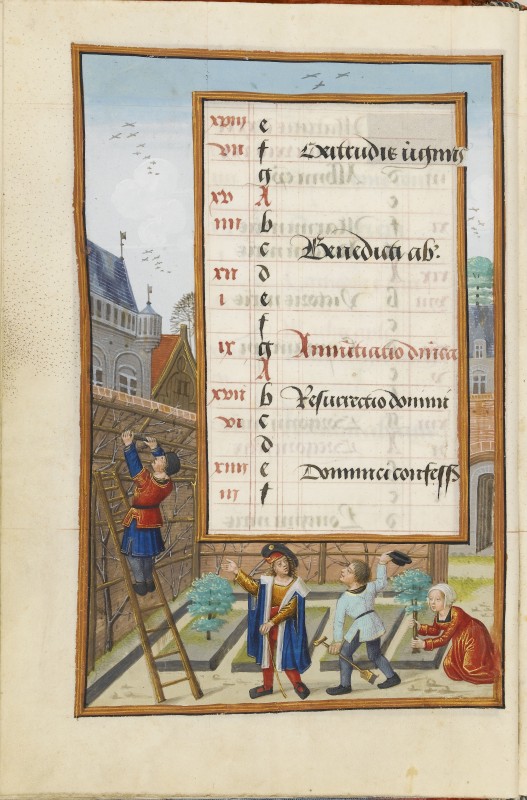 xviii e
vii f Gertrudis v̄ginis
g
xv A
iiii b
c Benedicti ab.
xii d
i e
f
ix g Annūtiatio dn̄ica
A
xvii b Resurrectio domini
vi c
d
xiiii e Dominici confess
iii f